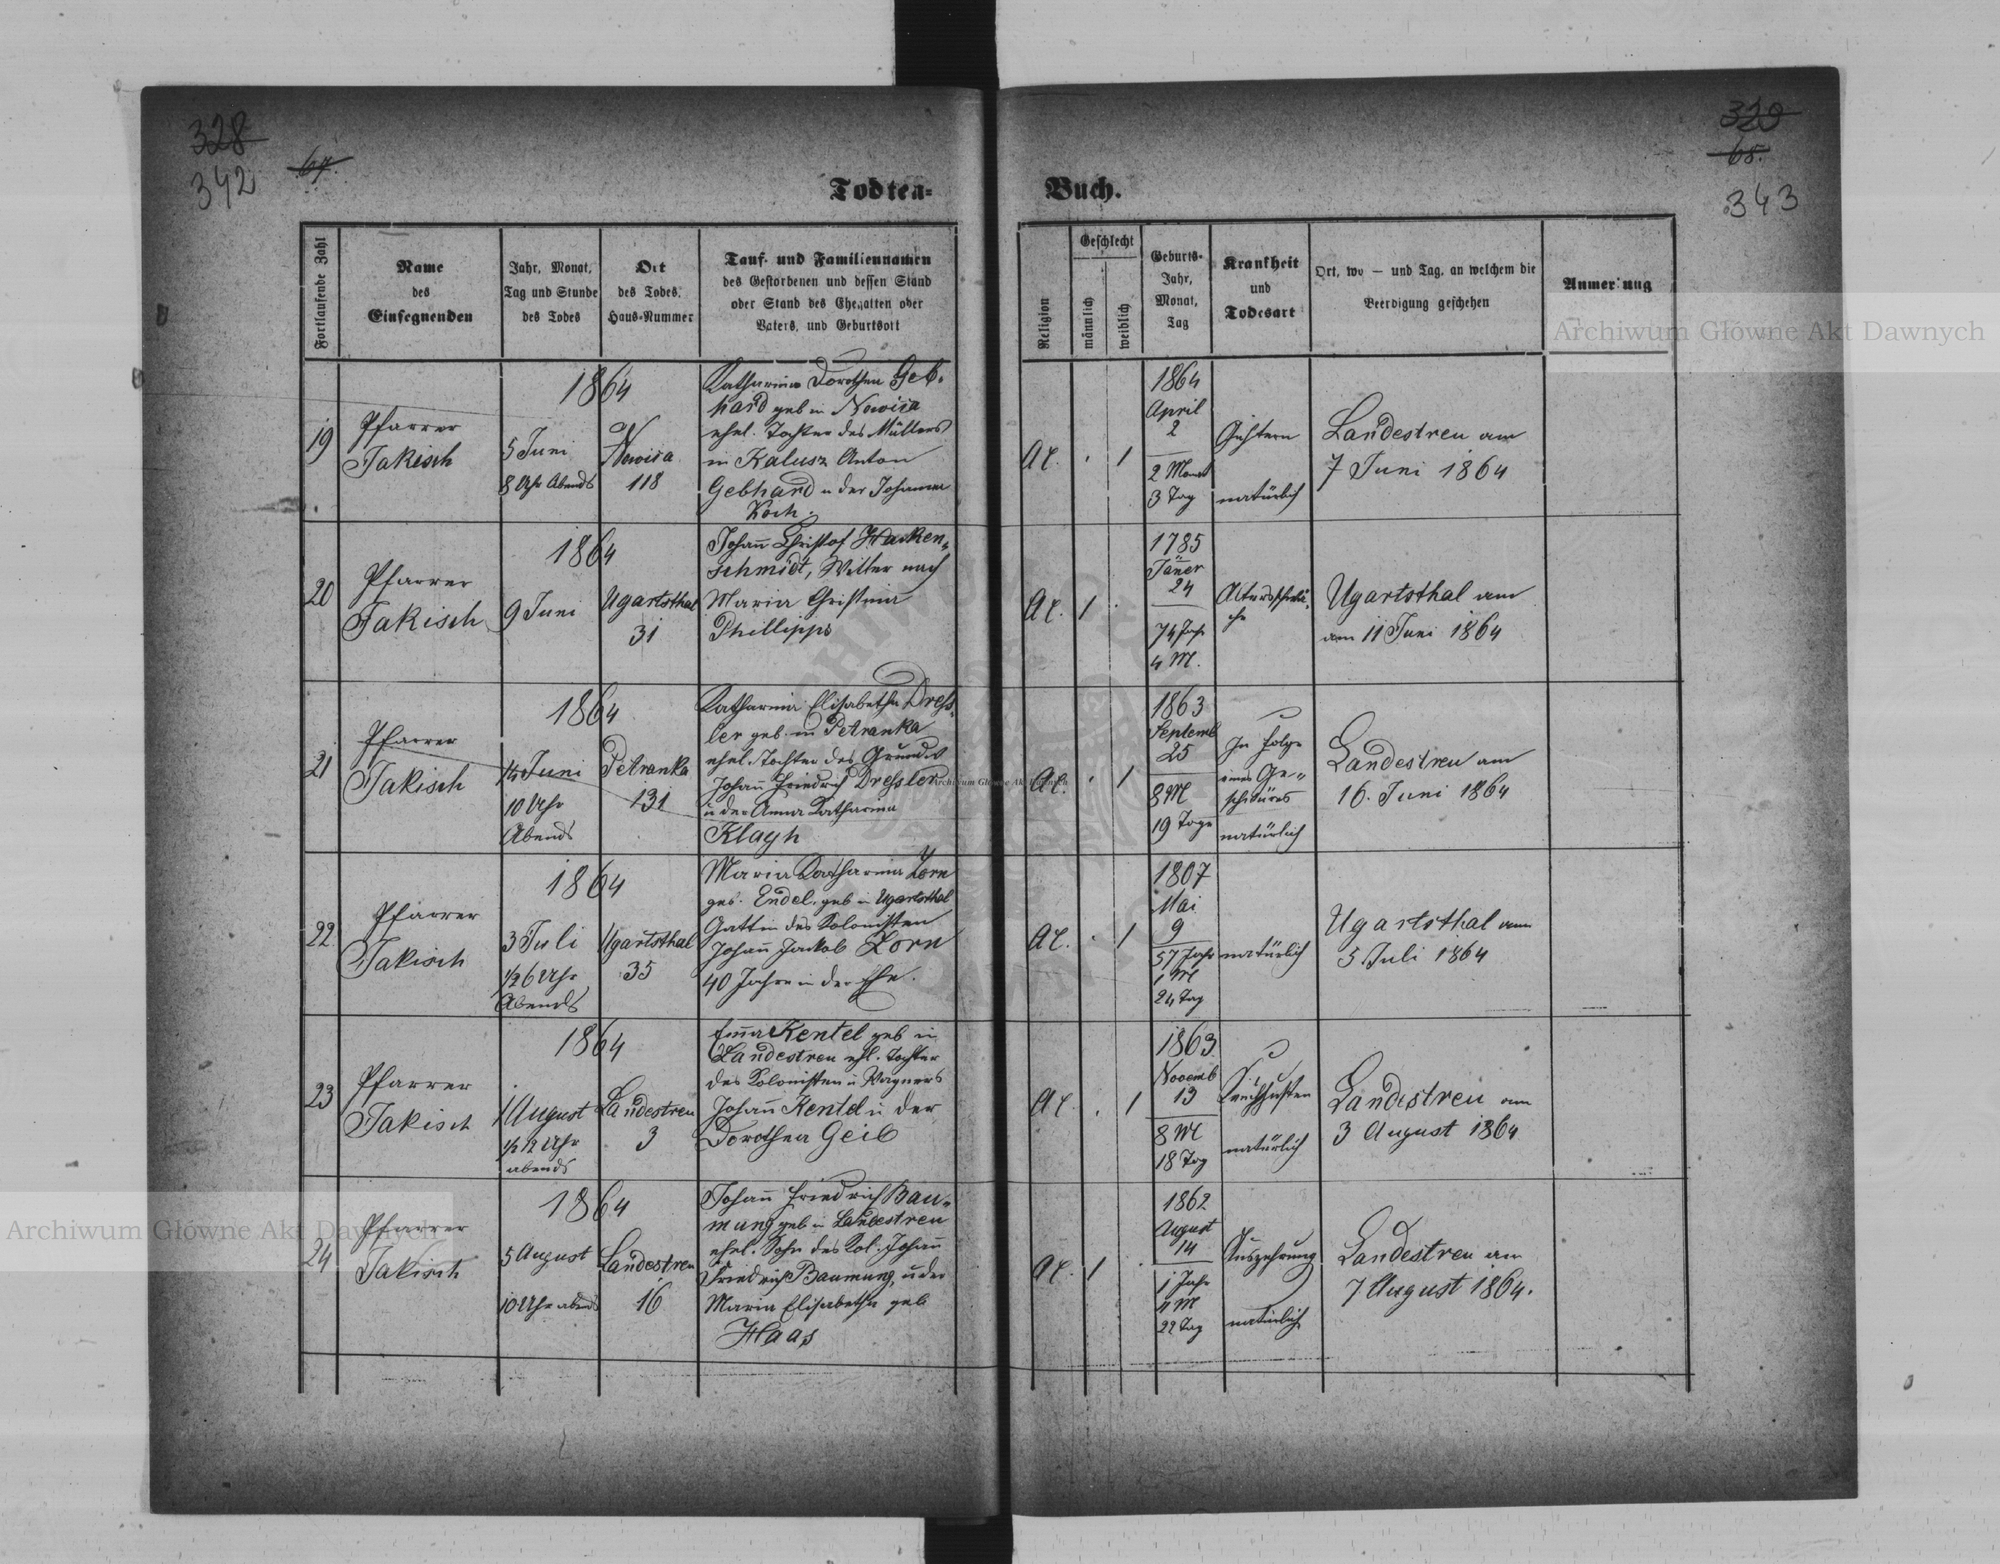 328
342
64.
Todten-
Fortlaufende Zahl
Name
des
Einsegnenden
Jahr, Monat,
Tag und Stunde
des Todes
Ort
des Todes,
Haus-Nummer
Tauf- und Familiennamen
des Gestorbenen und dessen Stand
oder Stand des Ehegatten oder
Vaters, und Geburtsort
19
Pfarrer
Jakisch
1864
5 Juni
8 Uhr Abends
Nowica
118
Katharina Dorothea Geb-
hard geb in Nowica
ehel. Tochter des Müllers
in Kalusz Anton
Gebhard u der Johanna
Koch.
20
Pfarrer
Jakisch
1864
9 Juni
Ugartsthal
31
Johann Christof Hacken-
schmidt, Witter nach
Maria Christina
Phillipps
21
Pfarrer
Jakisch
1864
14 Juni
10 Uhr
Abends
Petranka
131
Katharina Elisabetha Dress-
ler geb. in Petranka
ehel. Tochter des Grundw
Johann Friedrich Dressler
u der Anna Katharina
Klagh
22
Pfarrer
Jakisch
1864
3 Juli
1/2 6 Uhr
Abends
Ugartsthal
35
Maria Katharina Zorn
geb. Endel, geb in Ugartsthal
Gattin des Kolonisten
Johann Jackob Zorn
40 Jahre in der Ehe.
23
Pfarrer
Jakisch
1864
1 August
1/2 12 Uhr
abends
Landestreu
3
Emma Kentel geb in
Landestreu ehl. Tochter
des Kolonisten u Wagners
Johann Kentel u der
Dorothea Geib
24
Pfarrer
Jakisch
1864
5 August
10 Uhr abends
Landestreu
16
Johann Friedrich Bau-
mung geb in Landestreu
ehel. Sohn des Kol. Johann
Friedrich Baumung, u der
Maria Elisabetha geb
Haas
329
65.
343
Buch.
Religion
Geschlecht
männlich
weiblich
Geburts-
Jahr,
Monat,
Tag
Krankheit
und
Todesart
Ort, wo — und Tag, an welchem die
Beerdigung geschehen
Anmerkung
A.C. 1
1864
April
2
2 Monat
3 Tag
natürlich
Landestreu am
7 Juni 1864
A.C. 1
1785
Jäner
24
74 Jahr
4 M.
Altersschwä-
che
Ugartsthal am
am 11 Juni 1864
A.C. 1
1863
Septemb
25
8 M
19 Tage
In Folge
eines Ge-
schwüres
natürlich
Landestreu am
16. Juni 1864
A.C. 1
1807
Mai
9
57 Jahr
1 M
24 Tag
natürlich
Ugartsthal am
5 Juli 1864
A.C. 1
1863
Novemb
13
8 M
18 Tag
Keuchhusten
natürlich
Landestreu am
3 August 1864
A.C. 1
1862
August
14
1 Jahr
11 M
22 Tag
Auszehrung
natürlich
Landestreu am
7 August 1864.
Archiwum Główne Akt Dawnych
Archiwum Główne Akt Dawnych
Archiwum Główne Akt Dawnych